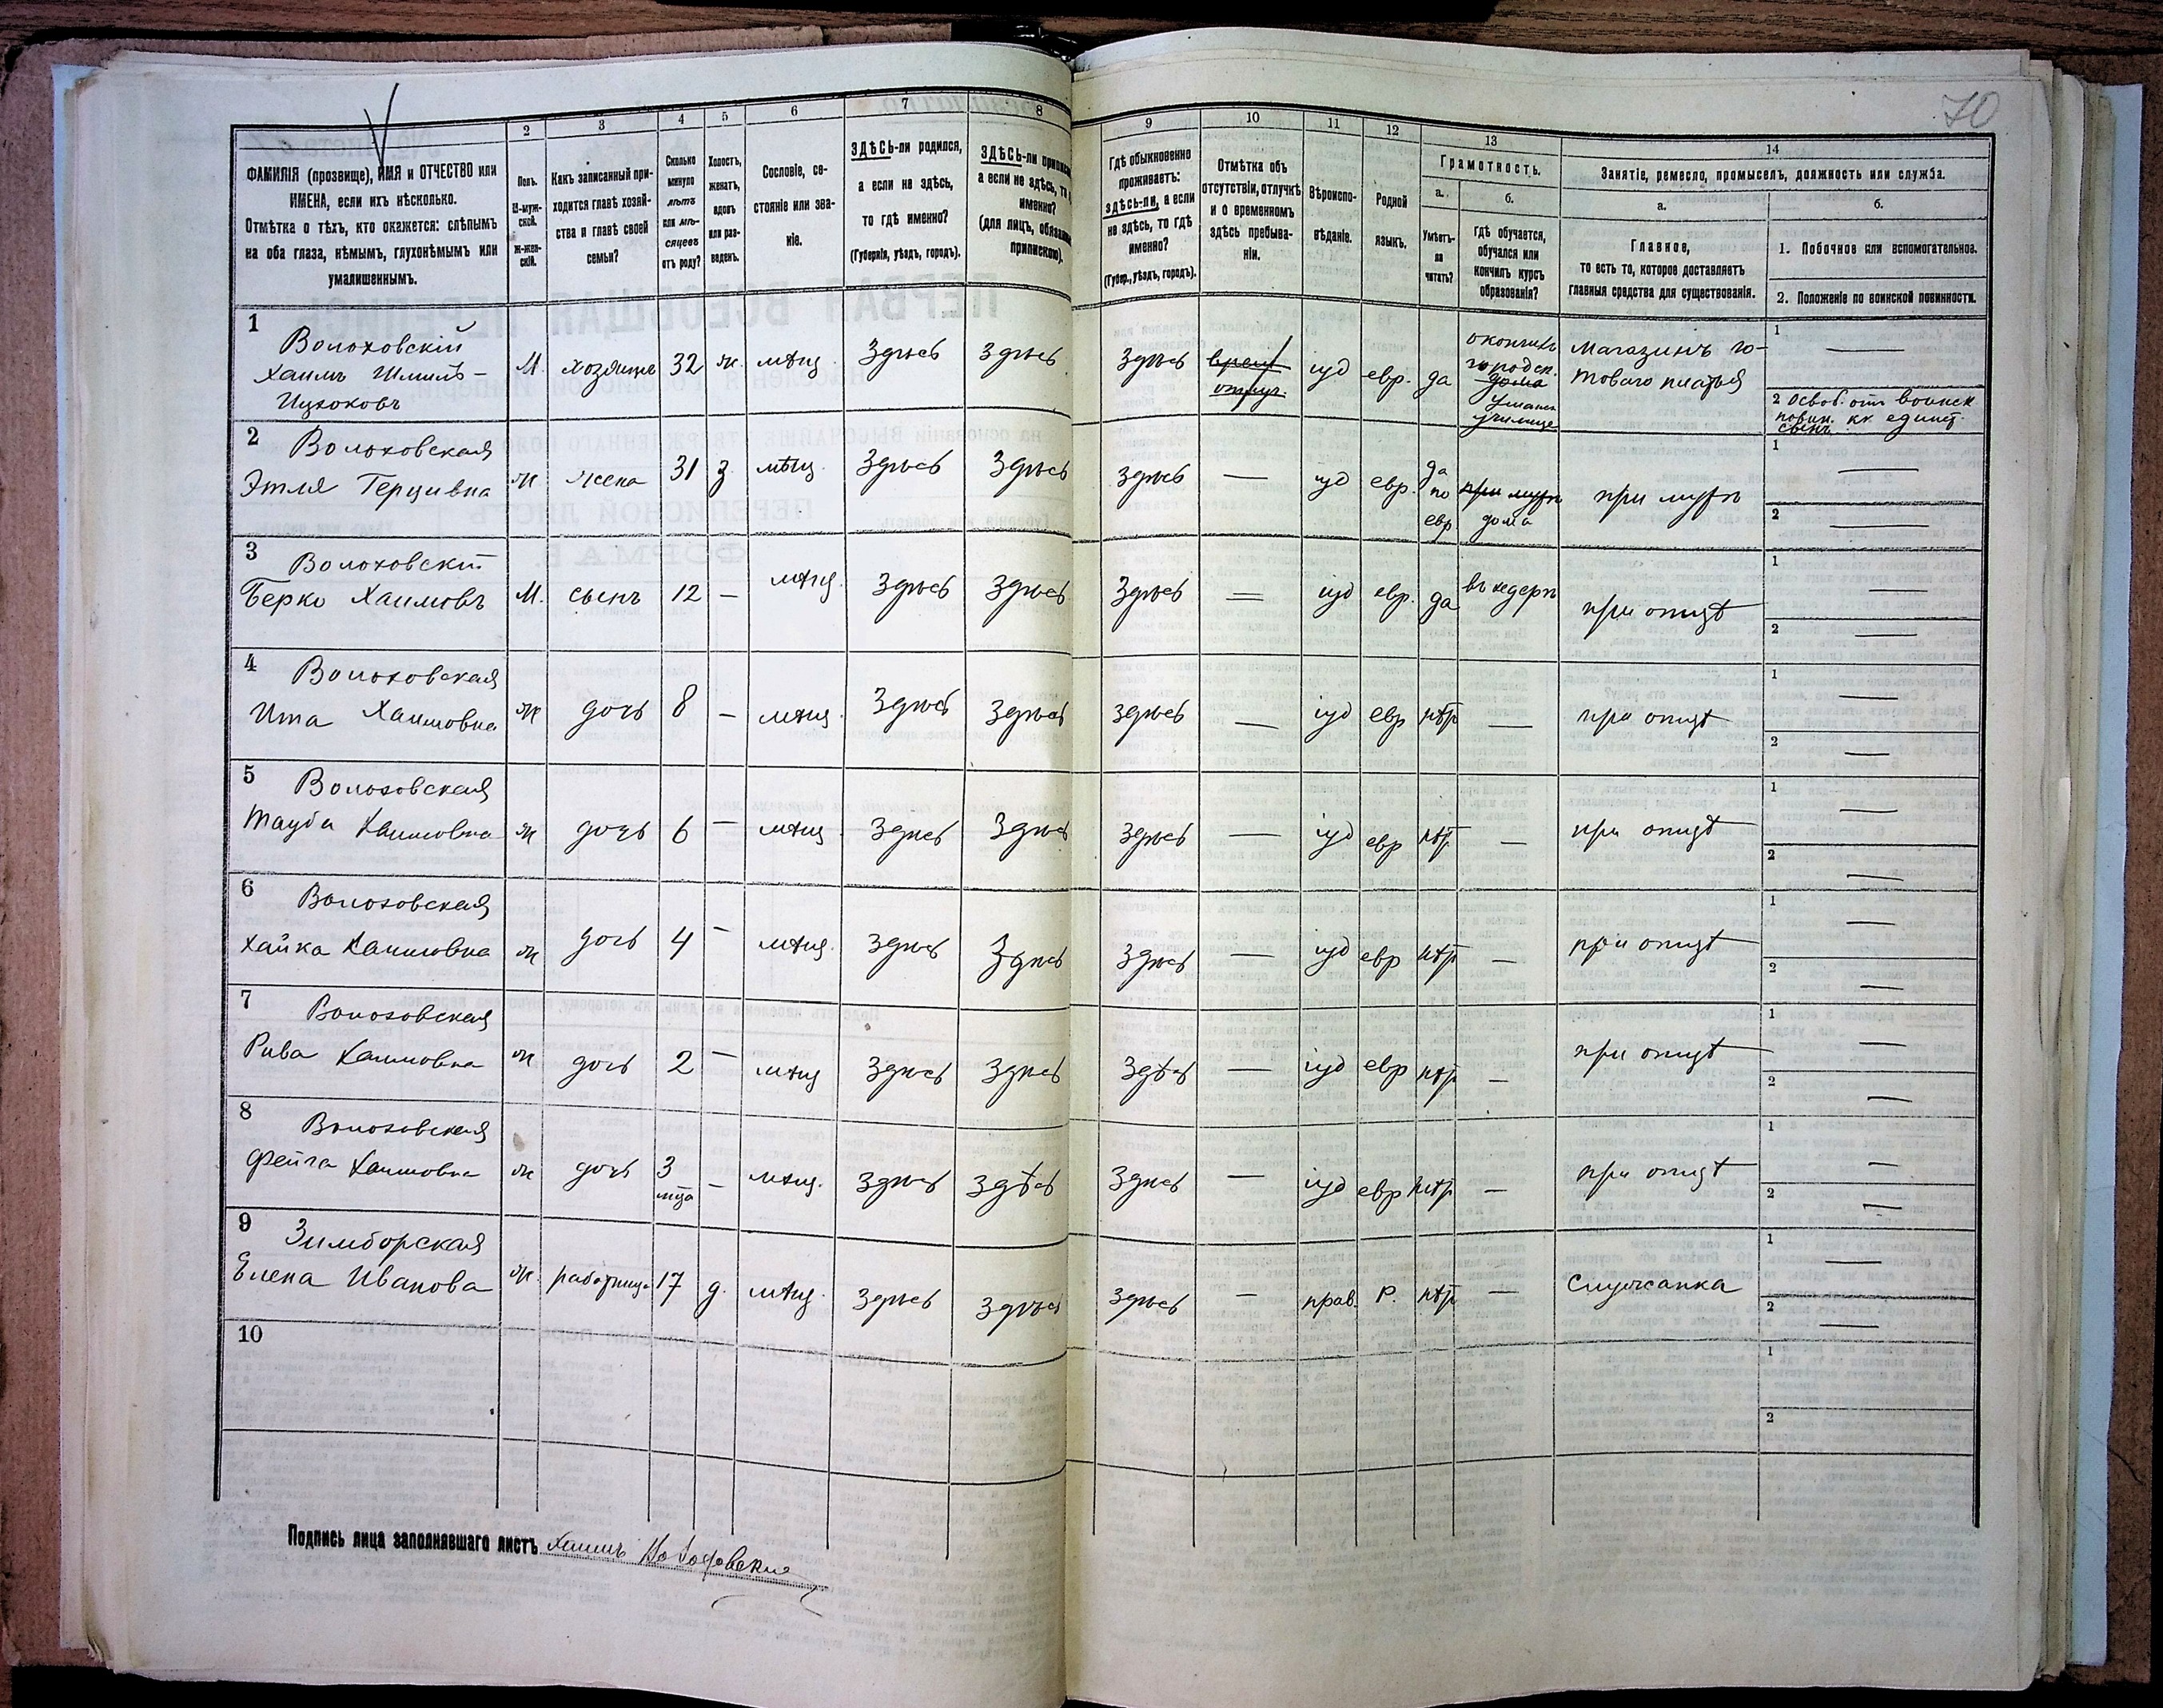 70
1
2
3
4
5
6
7
8
9
10
11
12
13
14
ФАМИЛІЯ (прозвище), ИМЯ и ОТЧЕСТВО или
ИМЕНА, если ихъ нѣсколько.
Отмѣтка о тѣхъ, кто окажется: слѣпымъ
на оба глаза, нѣмымъ, глухонѣмымъ или
умалишеннымъ.
Полъ.
М-муж-
ской.
Ж-жен-
скій.
Какъ записанный при-
ходится главѣ хозяй-
ства и главѣ своей
семьи?
Сколько
минуло
лѣтъ
или мѣ-
сяцевъ
отъ роду?
Холостъ,
женатъ,
вдовъ
или раз-
веденъ.
Сословіе, со-
стояніе или зва-
ніе.
ЗДѢСЬ-ли родился,
а если не здѣсь,
то гдѣ именно?
(Губернія, уѣздъ, городъ).
ЗДѢСЬ-ли
а если не здѣсь, то
именно?
(для лицъ,
припискою).
Гдѣ обыкновенно
проживаетъ:
здѣсь-ли, а если
не здѣсь, то гдѣ
именно?
(Губер., уѣздъ, городъ).
Отмѣтка объ
отсутствіи, отлучкѣ
и о временномъ
здѣсь пребыва-
ніи.
Вѣроиспо-
вѣданіе.
Родной
языкъ.
Грамотность.
а.
Умѣетъ-
ли
читать?
б.
гдѣ обучается,
обучался или
кончилъ курсъ
образованія?
Занятіе, ремесло, промыселъ, должность или служба.
а.
Главное,
то есть то, которое доставляетъ
главныя средства для существованія.
б.
1. Побочное или вспомогательное.
2. Положеніе по воинской повинности.
1 Волоховскій
Хаимъ Шмиль-
Ицхоковъ
М. хозяинъ 32 ж. мѣщ. Здѣсь Здѣсь
Здѣсь врем. отлуч. іуд евр. да
окончилъ
городск.
дома
Уманск
училище
Магазинъ го-
товаго платья
1 —
2 Освоб. отъ воинск
повин. кк единст.
сынъ
2 Волоховская
Этля Герцивна
ж жена 31 з. мѣщ. Здѣсь Здѣсь
Здѣсь — іуд евр. да
по
евр
при мужѣ
дома
при мужѣ
1 —
2 —
3 Волоховскій
Берко Хаимовъ
М. сынъ 12 — мѣщ. Здѣсь Здѣсь
Здѣсь — іуд евр. да въ хедерѣ при отцѣ
1 —
2 —
4 Волоховская
Ита Хаимовна
ж дочь 8 — мѣщ. Здѣсь Здѣсь
Здѣсь — іуд евр нѣт — при отцѣ
1 —
2 —
5 Волоховская
Тауба Хаимовна
ж дочь 6 — мѣщ. Здѣсь Здѣсь
Здѣсь — іуд евр нѣт — при отцѣ
1 —
2 —
6 Волоховская
Хайка Хаимовна
ж дочь 4 — мѣщ. Здѣсь Здѣсь
Здѣсь — іуд евр нѣт — при отцѣ
1 —
2 —
7 Волоховская
Рива Хаимовна
ж дочь 2 — мѣщ Здѣсь Здѣсь
Здѣсь — іуд евр нѣт — при отцѣ
1 —
2 —
8 Волоховская
Фейга Хаимовна
ж дочь 3
мца
— мѣщ. Здѣсь Здѣсь
Здѣсь — іуд евр нѣт — при отцѣ
1 —
2 —
9 Зимборская
Елена Иванова
ж. работница 17 д. мѣщ. Здѣсь Здѣсь
Здѣсь — прав. Р. нѣт — Служанка
1 —
2 —
10
1
2
Подпись лица заполнявшаго листъ Хаимъ Волоховскій